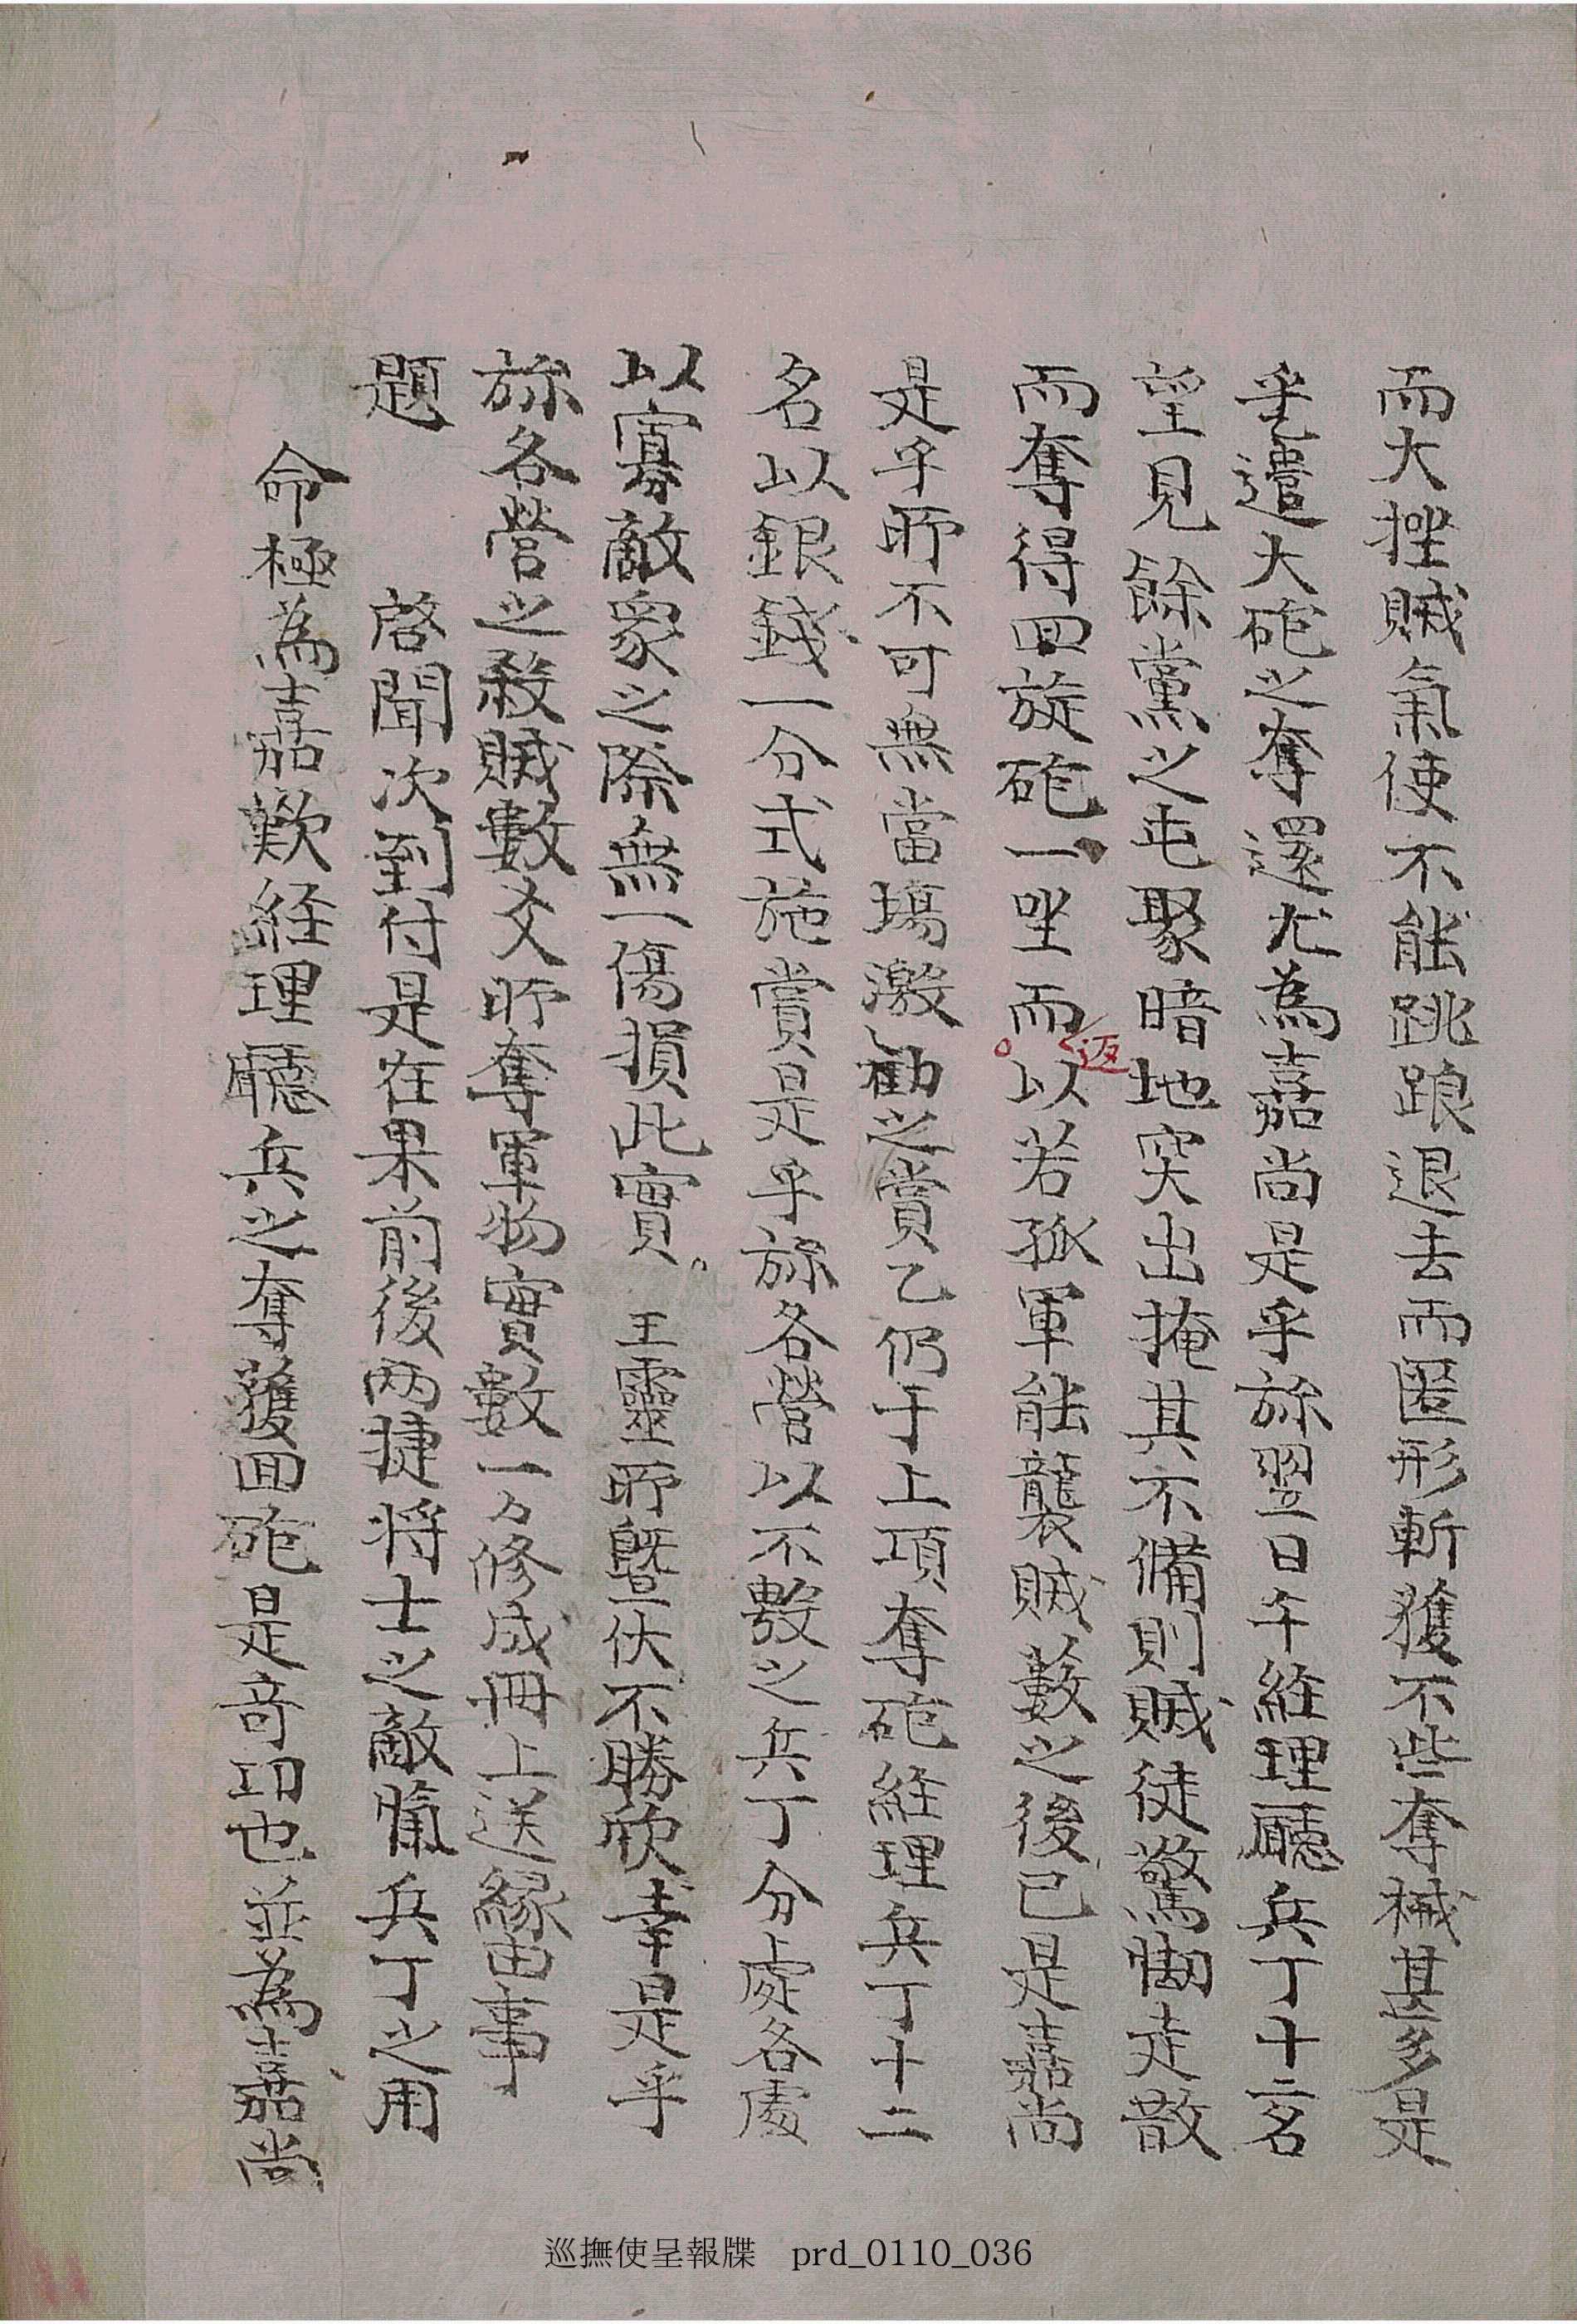 而大挫賊氣使不能跳踉退去而匿形斬獲不些奪械甚多是
乎遣大砲之奪還尤為嘉尚是乎旀翌日午經理廳兵丁十二名
望見餘黨之屯聚暗地突出掩其不備則賊徒驚㤼走散
而奪得回旋砲一坐而返以若孤軍能襲賊藪之後已是嘉尚
是乎所不可無當場激勸之賞乙仍于上項奪砲経理兵丁十二
名以銀錢一分式施賞是乎旀各營以不數之兵丁分處各處
以寡敵衆之際無一傷損此實 王靈所曁伏不勝欣幸是乎
旀各營之殺賊數爻所奪軍物實數一々修成冊上送緣由事
題 啓聞次到付是在果前後両捷将士之敵愾兵丁之用
命極為嘉歎経理廳兵之奪獲回砲是奇功也並為嘉尚
巡撫使呈報牒 prd_0110_036